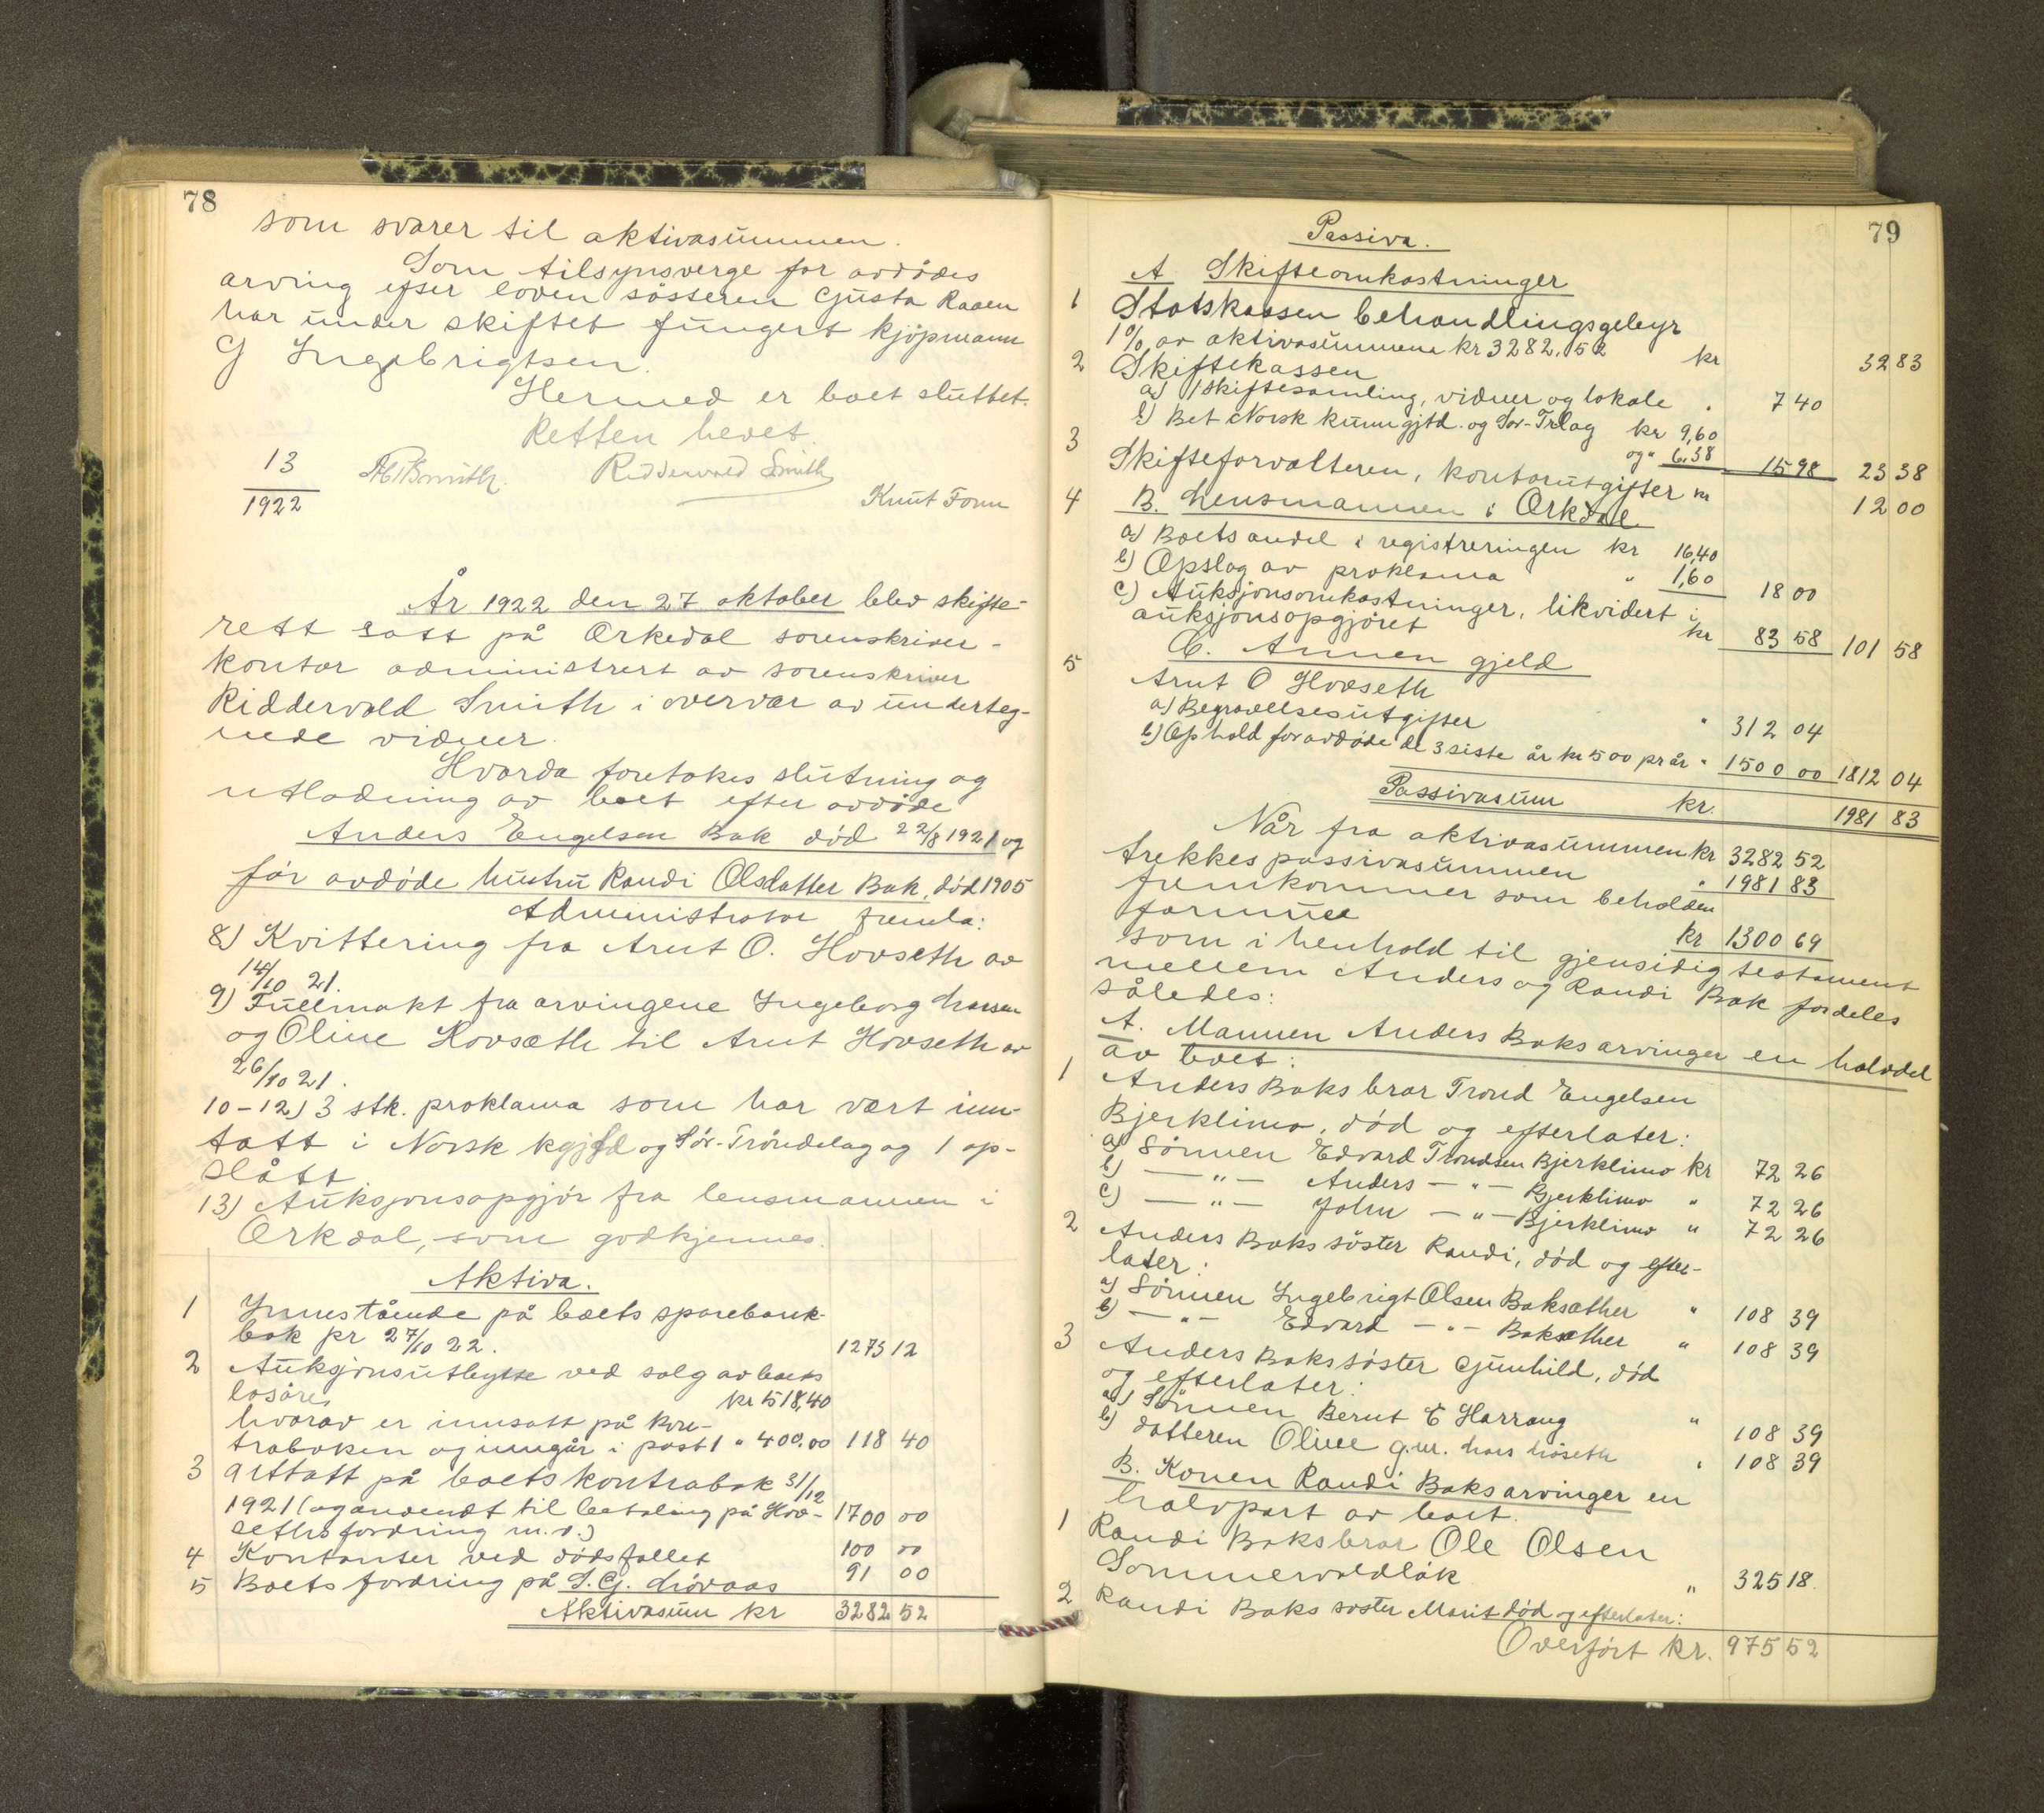 78
som svarer til aktivasummen.
Som tilsynsverge for avdødes
arving efter loven søsteren Gusta Raaen
har under skiftet fungert kjøpmann
G Ingebrigtsen.
Hermed er boet sluttet.
Retten hevet.
13
1922
Ridderwold Smith
Knut
År 1922 den 27 oktober blev skifte-
rett satt på Orkedal sorenskriver-
kontor administrert av sorenskriver
Riddervold Smith i overvær av underteg-
nede vidner.
Hvorda foretokes slutning og
utlodning av boet efter avdøde
Anders Engelsen Bak død 22/8 1921 og
før avdøde hustru Randi Olsdatter Bak, død 1905
Administrator fremla:
8) Kvittering fra Arnt O. Hovseth av
14/10 21.
9) Fullmakt fra arvingene Ingeborg Larsen
og Oline Hovsæth til Arnt Hovseth av
26/10 21.
10-12) 3 stk. proklama som har vært inn-
tatt i Norsk kgjtd og Sør-Trøndelag og 1 op-
slått
13) Auksjonsopgjør fra lensmannen i
Orkdal, som godkjennes.
Aktiva.
1 Innestående på boets sparebank-
bok pr 27/10 22. 1273 12
2 Auksjonsutbytte ved salg av boets
løsøre kr 518,40
hvorav er innsatt på kon-
traboken og inngår i post 1 " 400.00 118 40
3 Uttatt på boets kontrabok 31/12
1921 (og anvendt til betaling på Hov- 1700 00
seths fordring m.v.)
4 Kontanter ved dødsfallet 100 00
5 Boets fordring på S. G. Løvaas 91 00
Aktivasum kr 3282 52
79
Passiva.
A Skifteomkostninger
1 Statskassen behandlingsgebyr
1% av aktivasummen kr 3282.52 kr 32 83
2 Skiftekassen
a) 1 skiftesamling, vidner og lokale " 7 40
b) Bet Norsk kunngjtd. og Sør-Trlag kr 9,60
og " 6.38 15 98 23 38
3 Skifteforvalteren, kontorutgifter kr 12 00
4 B. Lensmannen i Orkdal
a) Boets andel i registreringen kr 16,40
b) Opslag av proklama " 1,60 18 00
c) Auksjonsomkostninger, likvidert i
auksjonsopgjøret kr 83 58 101 58
C. Annen gjeld
5 Arnt O Hovseth
a) Begravelsesutgifter " 312 04
b) Ophold for avdøde de 3 siste år kr 500 pr år " 1500 00 1812 04
Passivasum kr. 1981 83
Når fra aktivasummen kr 3282 52
trekkes passivasummen " 1981 83
fremkommer som beholden
formue kr 1300 69
som i henhold til gjensidig testament
mellem Anders og Randi Bak fordeles
således:
A. Mannen Anders Baks arvinger en halvdel
av boet:
1 Anders Baks bror Trond Engelsen
Bjerklimo, død og efterlater:
a) Sønnen Edvard Trondsen Bjerklimo kr 72 26
b) — " — Anders — " — Bjerklimo " 72 26
c) — " — John — " — Bjerklimo " 72 26
2 Anders Baks søster Randi, død og efter-
later:
a) Sønnen Ingebrigt Olsen Baksæther " 108 39
b) — " — Edvard — " — Baksæther " 108 39
3 Anders Baks søster Gunhild, død
og efterlater:
a) Sønnen Bernt E Harrang " 108 39
b) datteren Oline g.m. Lars " 108 39
B. Konen Randi Baks arvinger en
halvpart av boet.
1 Randi Baks bror Ole Olsen
Sommervoldløk " 325 18.
2 Randi Baks søster Marit død og efterlater:
Overført kr. 975 52